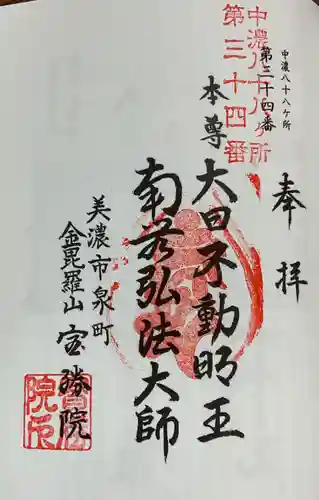 奉拝
中濃八十八ケ所
第三十四番
中濃八十八ヶ所
第三十四番
本尊
大日不動明王
南無弘法大師
美濃市泉町
金毘羅山
宝勝院